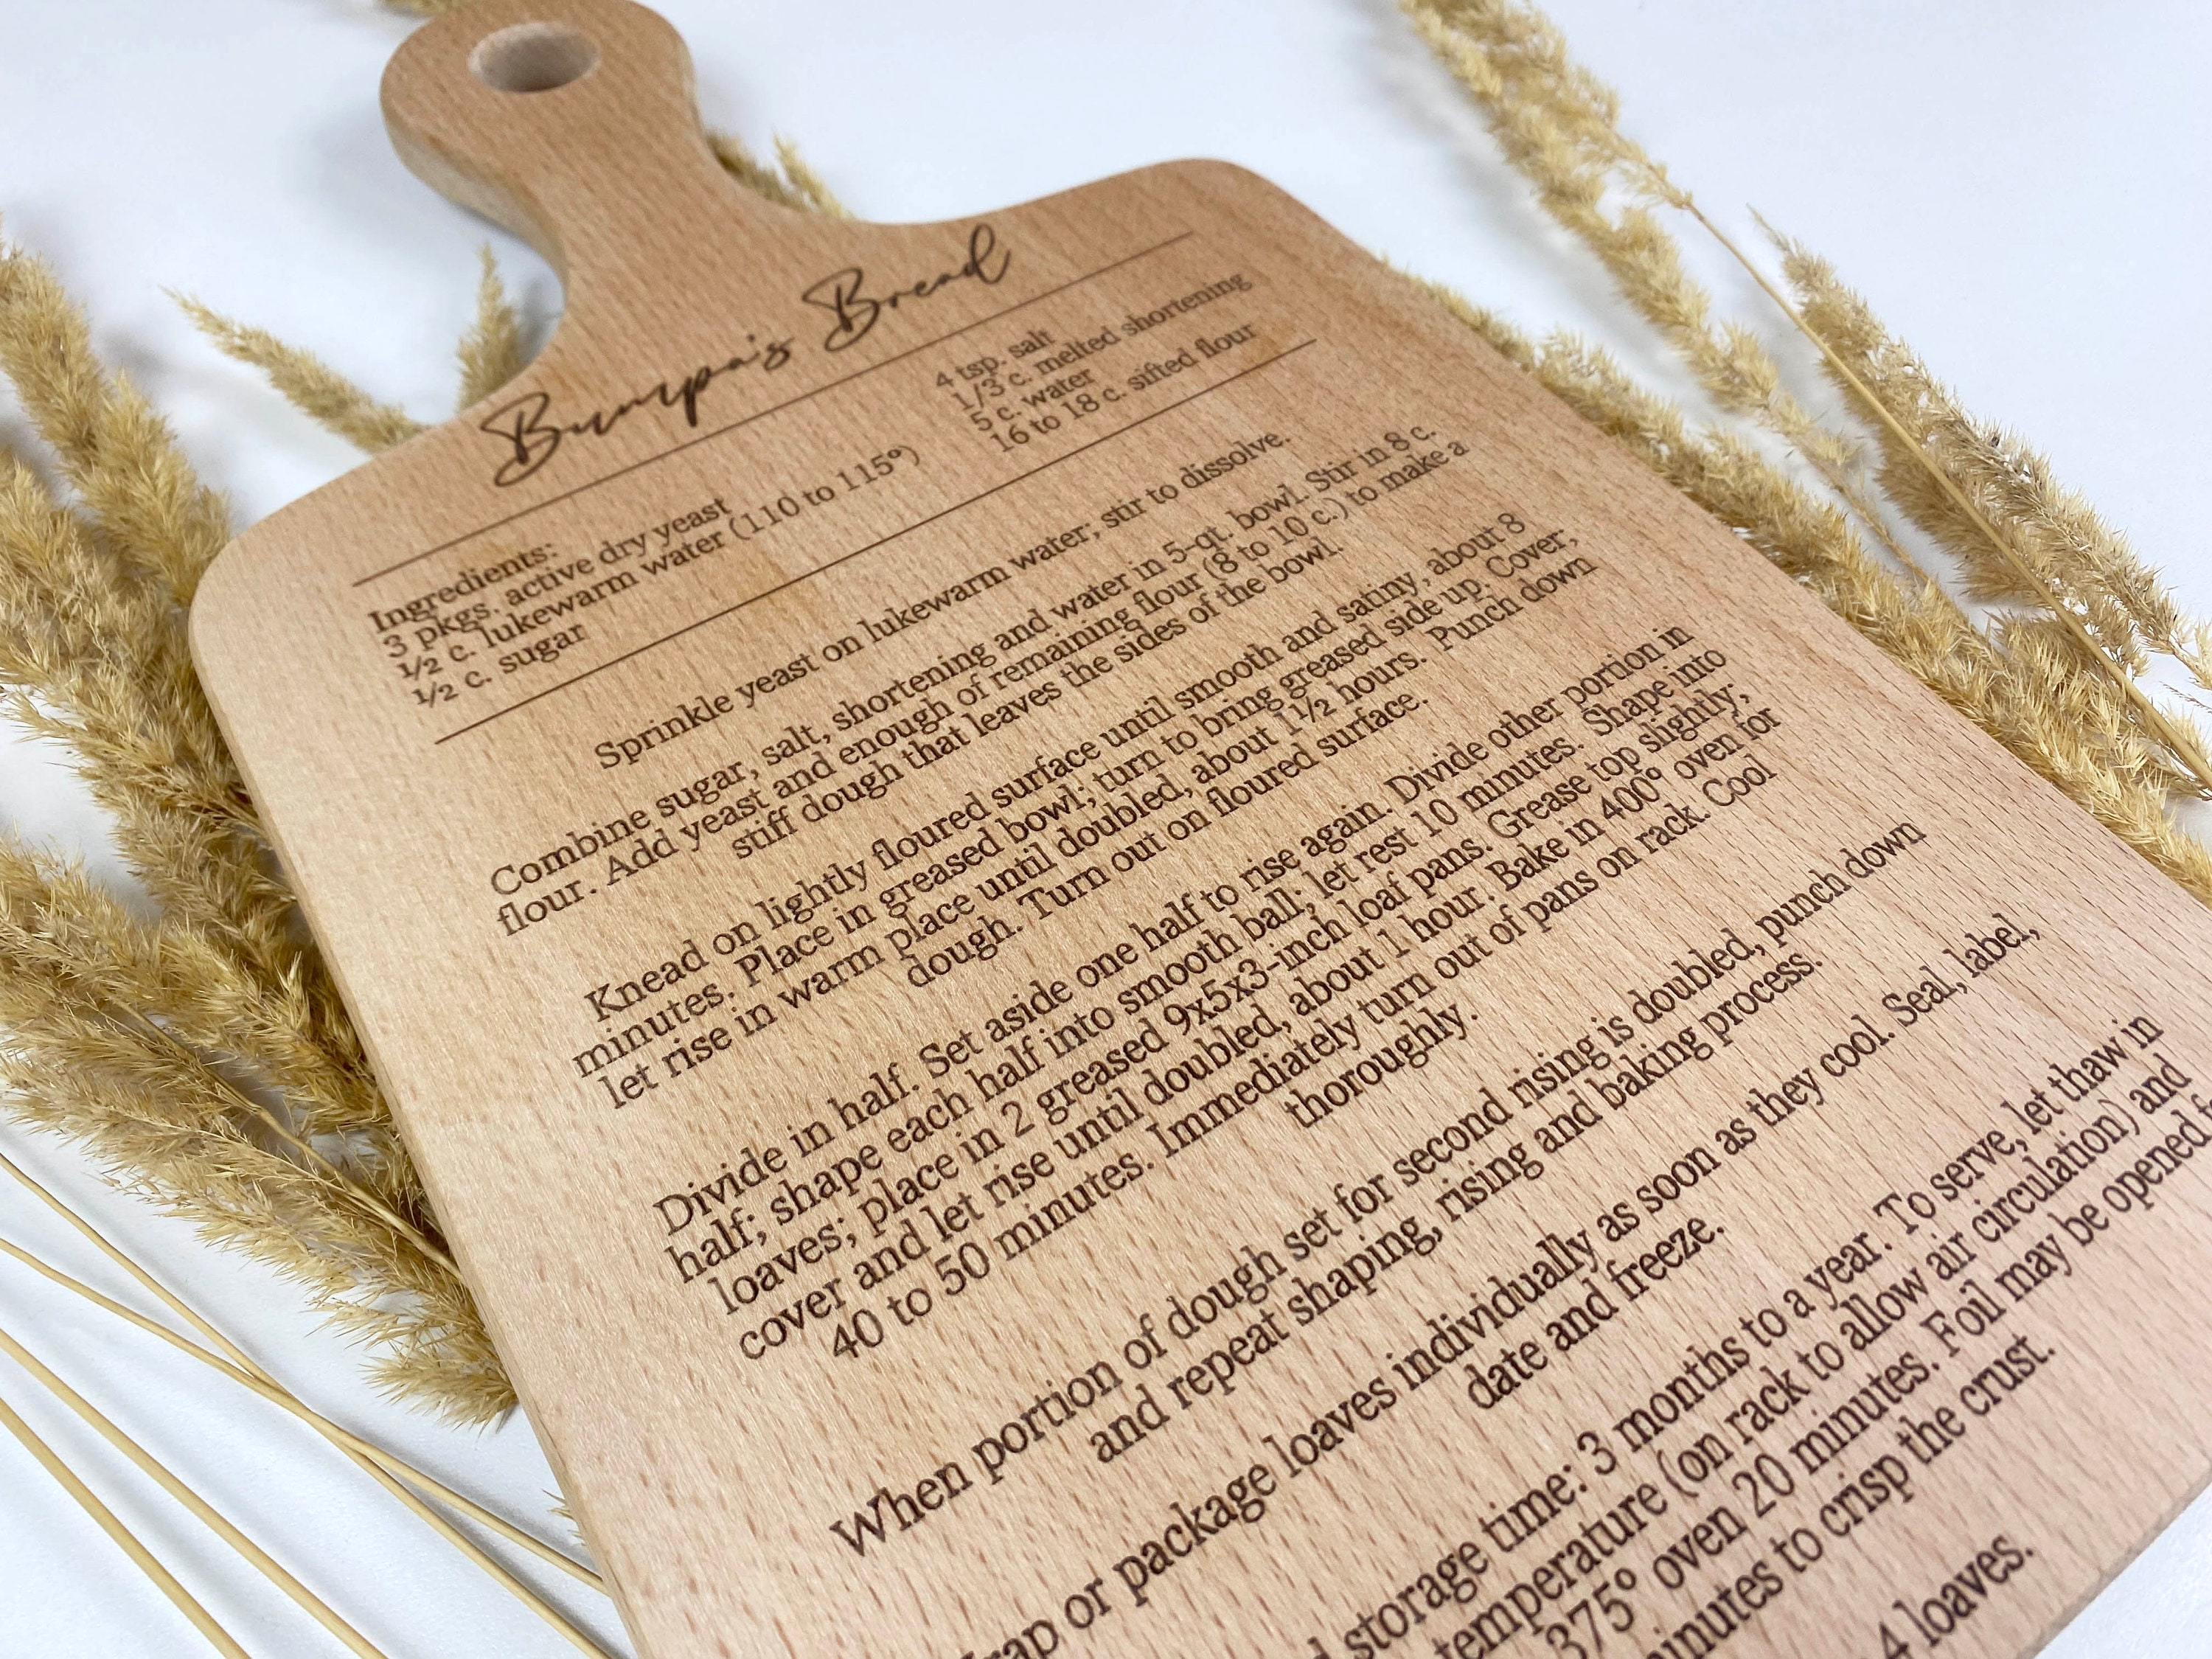 Bumpa's Bread
Ingredients:
3 pkgs. active dry yeast
½ c. lukewarm water (110 to 115º)
½ c. sugar
4 tsp. salt
1/3 c. melted shortening
5 c. water
16 to 18 c. sifted flour
Sprinkle yeast on lukewarm water; stir to dissolve.
Combine sugar, salt, shortening and water in 5-qt. bowl. Stir in 8 c.
flour. Add yeast and enough of remaining flour (8 to 10 c.) to make a
stiff dough that leaves the sides of the bowl.
Knead on lightly floured surface until smooth and satiny, about 8
minutes. Place in greased bowl; turn to bring greased side up. Cover,
let rise in warm place until doubled, about 1½ hours. Punch down
dough. Turn out on floured surface.
Divide in half. Set aside one half to rise again. Divide other portion in
half; shape each half into smooth ball; let rest 10 minutes. Shape into
loaves; place in 2 greased 9x5x3-inch loaf pans. Grease top slightly;
cover and let rise until doubled, about 1 hour. Bake in 400º oven for
40 to 50 minutes. Immediately turn out of pans on rack. Cool
thoroughly.
When portion of dough set for second rising is doubled, punch down
and repeat shaping, rising and baking process.
or package loaves individually as soon as they cool. Seal, label,
date and freeze.
storage time: 3 months to a year. To serve, let thaw in
temperature (on rack to allow air circulation) and
375º oven 20 minutes. Foil may be opened
minutes to crisp the crust.
4 loaves.